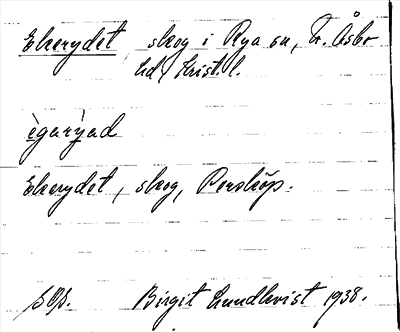 Ekerydet, skog i Rya sn, N. Åsbo
hd, Krist. l.
ègarỳad
Ekerydet, skog, Perstorp.
Birgit Lundkvist 1938.